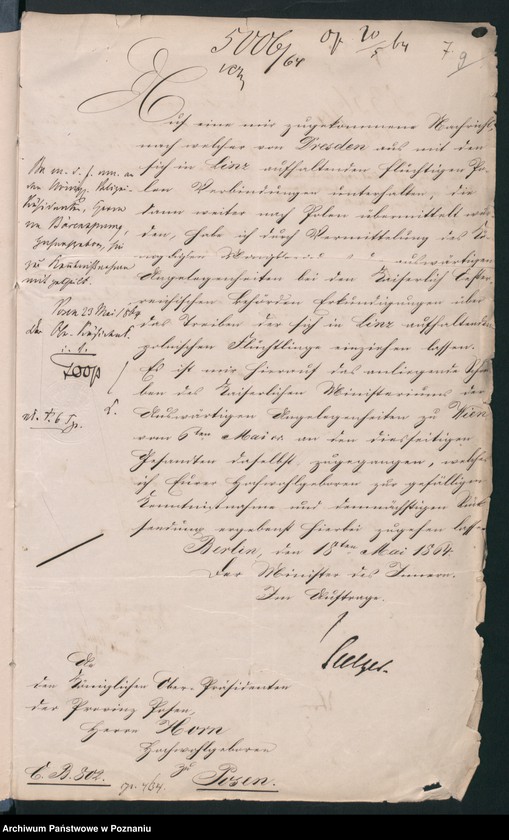 5006/64
op 20/5 64
7.
9
Auf eine mir zugekommene Nachricht,
nach welcher von Dresden aus mit den
sich in Linz aufhaltenden flüchtigen Po-
len Verbindungen unterhalten, die
dann weiter nach Polen übermittelt wür-
den, habe ich durch Vermittelung des Kö-
niglichen Ministeriums der auswärtigen
Angelegenheiten bei den Kaiserlich Oester-
reichischen Behörden Erkundigungen über
das Treiben der sich in Linz aufhaltenden
polnischen Flüchtlinge einziehen lassen.
Es ist mir hierauf das anliegende Schrei-
ben des Kaiserlichen Ministeriums der
Auswärtigen Angelegenheiten zu Wien
vom 6ten Mai an den diesseitigen
Gesandten daselbst, zugegangen, welches
ich Eurer Hochwohlgeboren zur gefälligen
Kenntnißnahme und demnächstigen Rück-
sendung ergebenst hierbei zugehen lasse.
Berlin, den 18ten Mai 1864
Der Minister des Innern.
Im Auftrage.
An
den Königlichen Ober-Präsidenten
der Provinz Posen,
Herrn Horn
Hochwohlgeboren
zu
Posen.
C. B. 302.
den Königl. Polizei-
Präsidenten, Herrn
von Bärensprung,
Hochwohlgeboren,
zur Kenntnißnahme
mitgetheilt.
Posen 23 Mai 1864
Der Ob. Präsident.
Archiwum Państwowe w Poznaniu